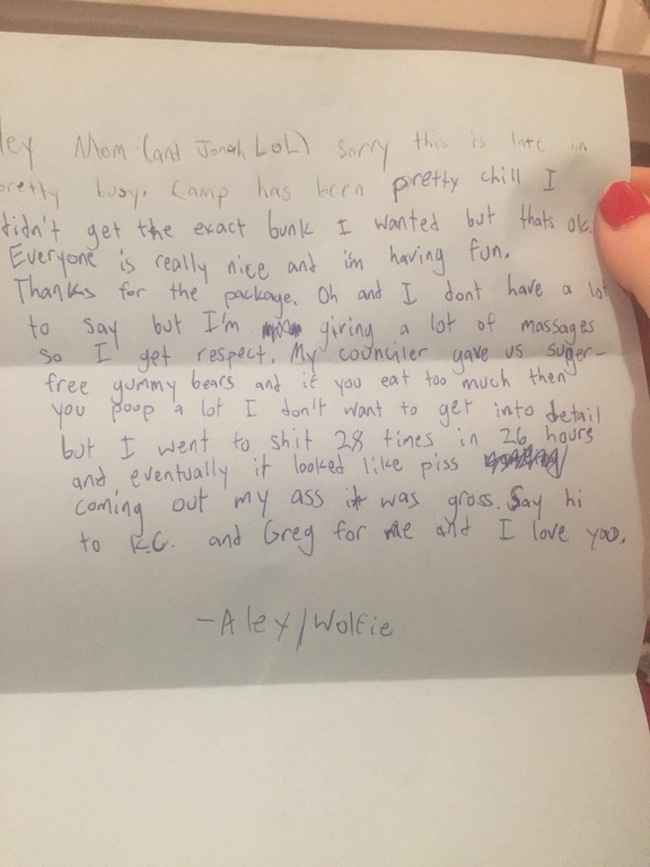 ey Mom (and Jonah LoL) sorry this is late im
pretty busy. Camp has been pretty chill I
didn't get the exact bunk I wanted but thats ok.
Everyone is really nice and im having fun.
Thanks for the package. Oh and I dont have a lot
to say but I'm giving a lot of massages
so I get respect. My counciler gave us suger-
free gummy bears and if you eat too much then
you poop a lot I don't want to get into detail
but I went to shit 28 times in 26 hours
and eventually it looked like piss
coming out my ass it was gross. Say hi
to K.C. and Greg for me and I love you.
-Alex/Wolfie